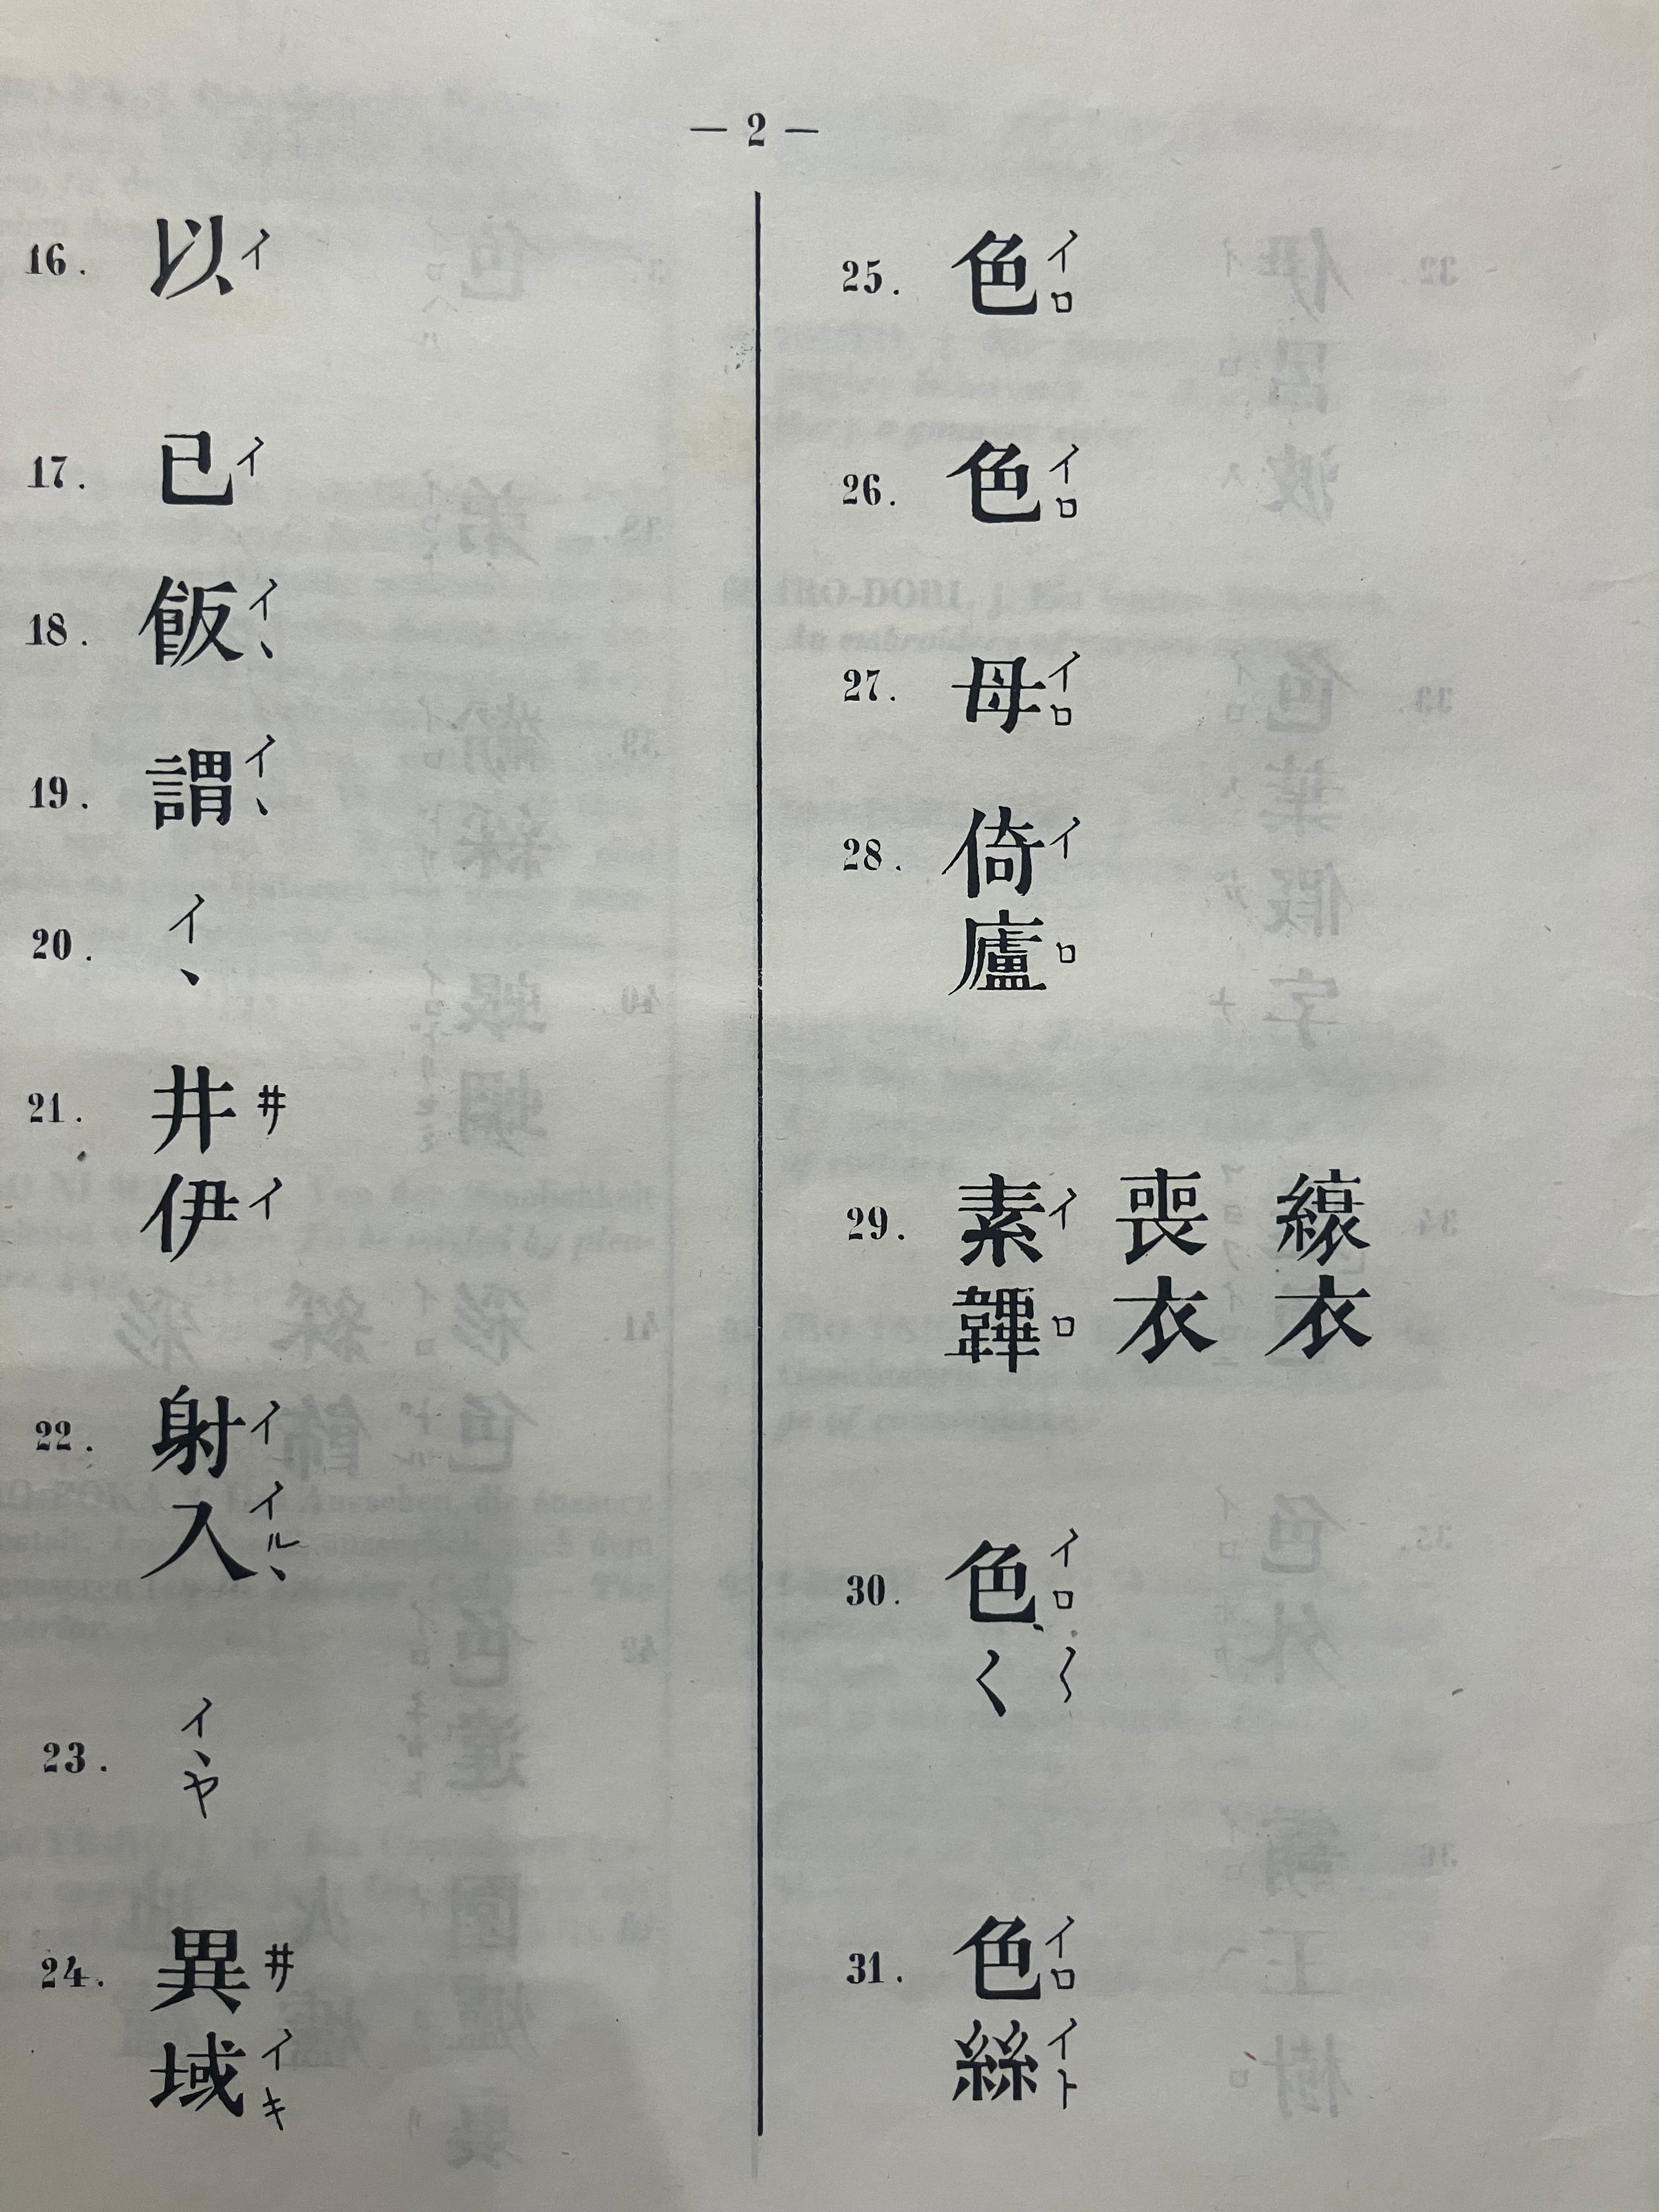 — 2 —
16. 以 イ
17. 已 イ
18. 飯 イヽ
19. 謂 イヽ
20. イヽ
21. 井伊 井イ
22. 射入 イイルヽ
23. イヽヤ
24. 異域 井イキ
25. 色 イロ
26. 色 イロ
27. 母 イロ
28. 倚廬 イロ
29. 素韠 イロ 喪衣 縗衣
30. 色〱 イロ〱
31. 色絲 イロイト